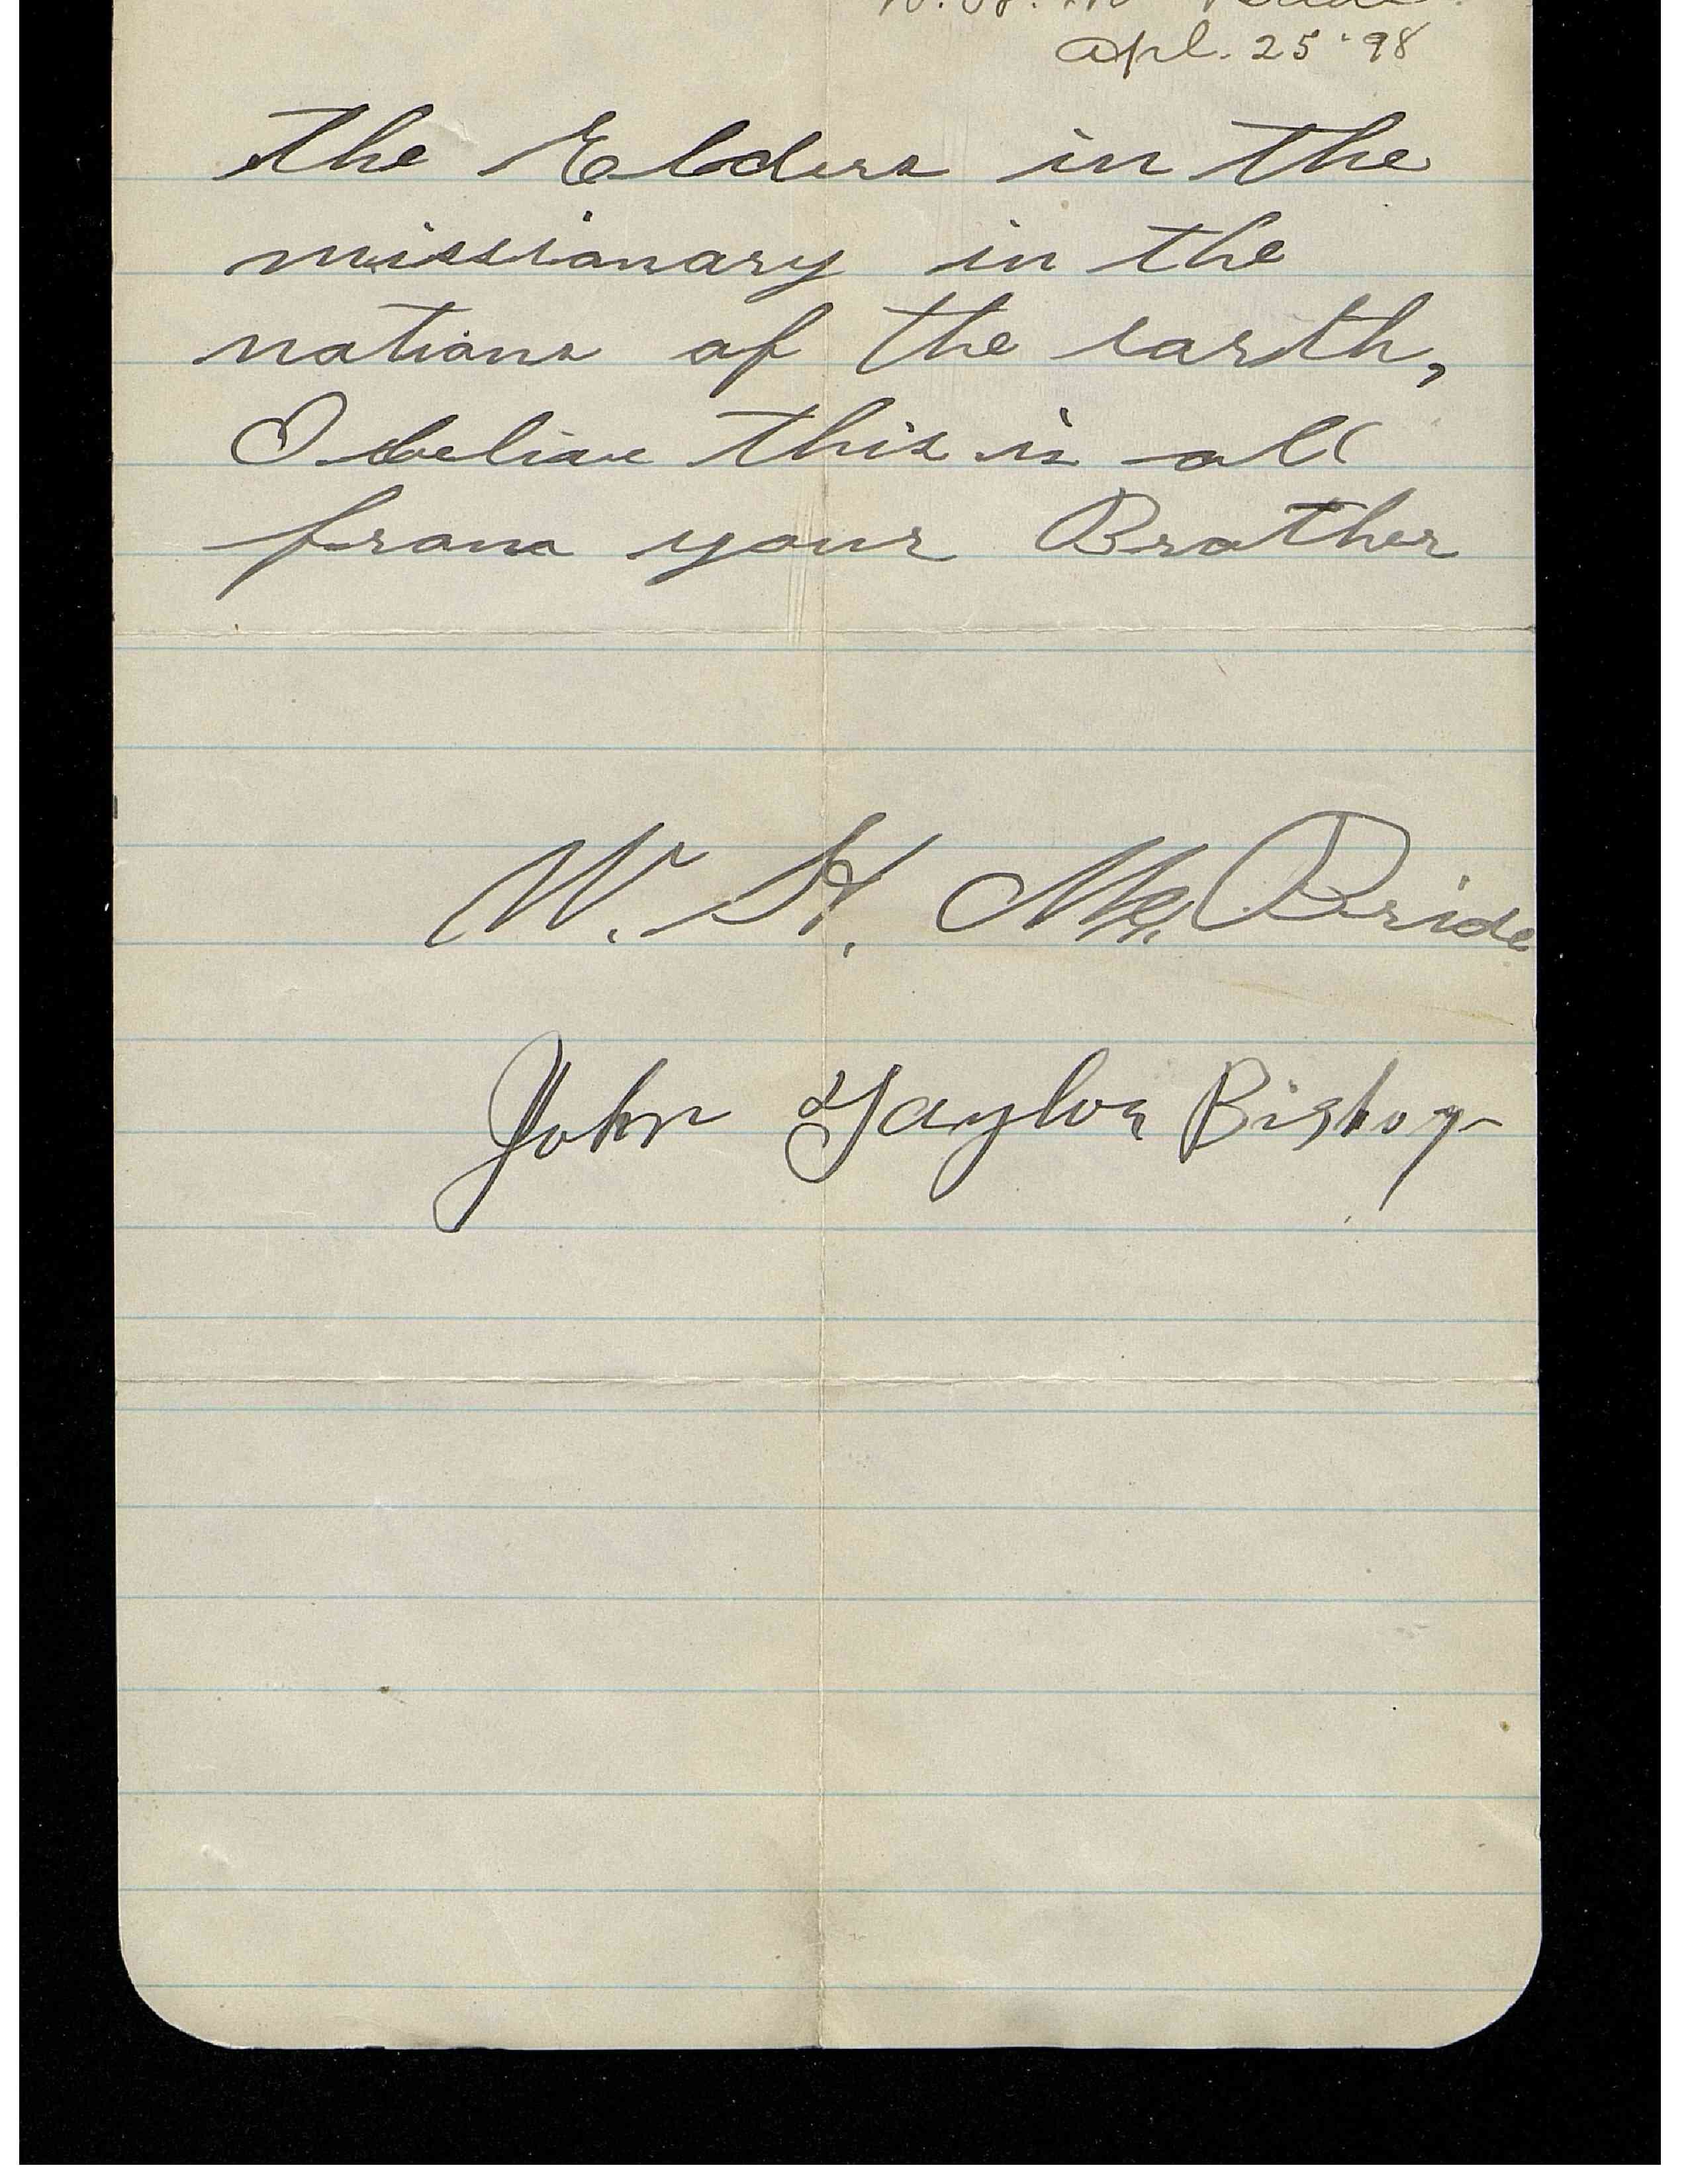 Apl. 25 '98
the Elders in the
missionary in the
nations of the earth,
I beliave this is all
from your Brother
W. H. McBride
John Taylor Bishop